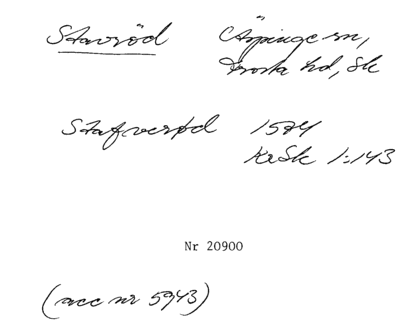 Stavröd Äspinge sn,
Frosta hd, Sk
Stafverød 1584
KrSk 1:143
Nr 20900
(acc nr 5943)